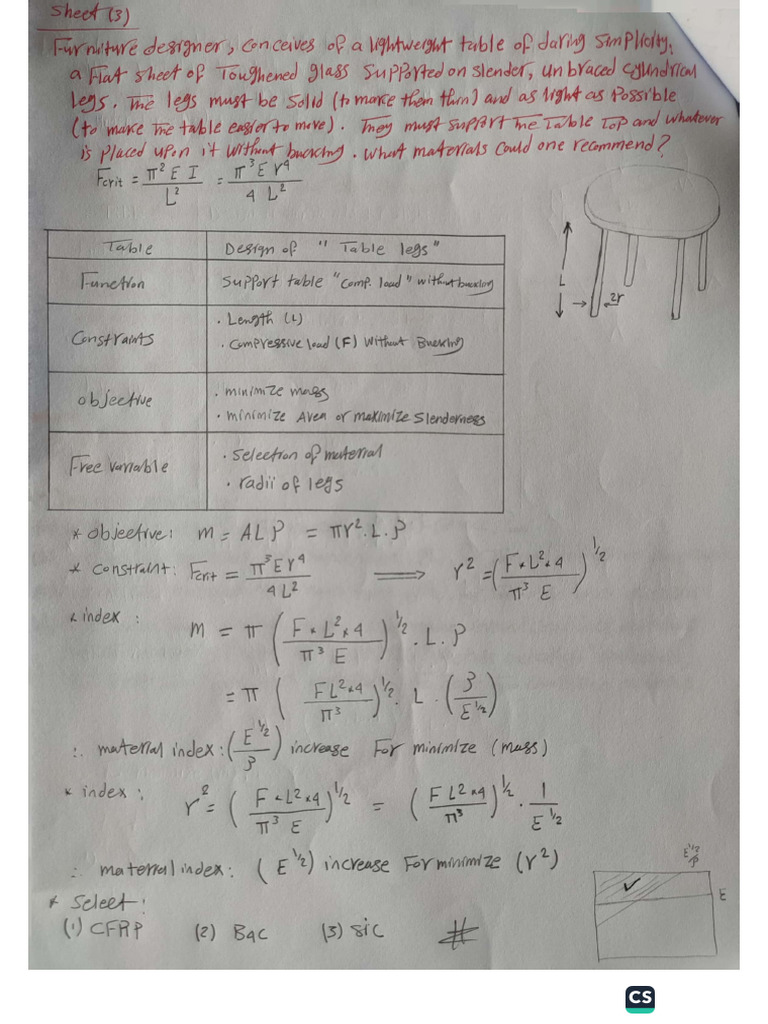 Sheet (3)
Furniture designer, conceives of a lightweight table of daring simplicity,
a Flat sheet of Toughened glass supported on slender, unbraced cylindrical
legs. The legs must be solid (to make them thin) and as light as possible
(to make the table easier to move). They must support the Table Top and whatever
is placed upon it without buckling. What materials could one recommend?
Fcrit = π² E I / L² = π³ E r⁴ / 4 L²
Table Design of " Table legs"
Function support table "comp. load" without buckling
Constraints • Length (L)
• compressive load (F) without Buckling
objective • minimize mass
• minimize Area or maximize slenderness
Free variable • selection of material
• radii of legs
L
2r
* objective: m = A L ρ = πr². L. ρ
* constraint: Fcrit = π³Er⁴ / 4L² ⟹ r² = (F*L²*4 / π³ E)^1/2
* index :
m = π (F*L²*4 / π³ E)^1/2 . L. ρ
= π (FL²*4 / π³)^1/2 . L . (ρ / E^1/2)
∴ material index: (E^1/2 / ρ) increase For minimize (mass)
* index: r² = (F*L²*4 / π³ E)^1/2 = (F L²*4 / π³)^1/2 . 1 / E^1/2
∴ material index: (E^1/2) increase For minimize (r²)
E^1/2 / ρ
E
* Select:
(1) CFRP (2) B4C (3) SiC #
CS